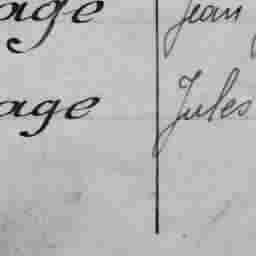 age Jean
age Jules